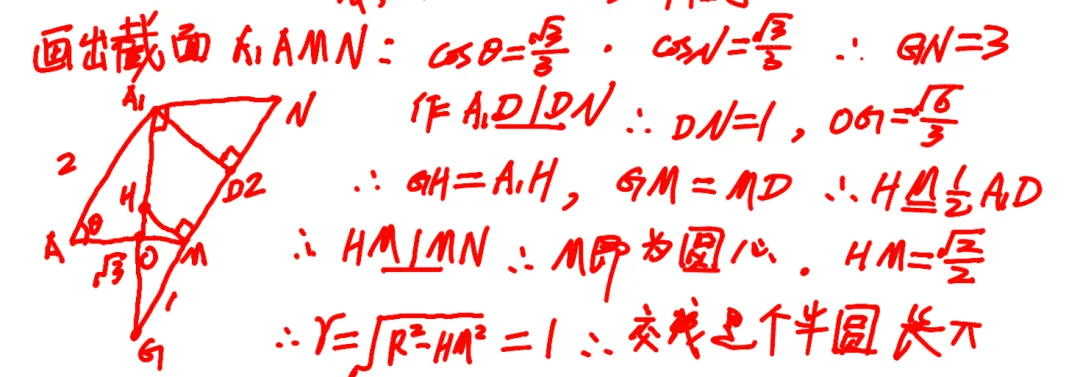 画出截面 A₁AMN: cosθ=√3/3 . cosN=√3/3 ∴ GN=3
作 A₁D⊥DN ∴ DN=1, OG=√6/3
∴ GH=A₁H, GM=MD ∴ HM ∥= 1/2 A₁D
∴ HM⊥MN ∴ M即为圆心. HM=√2/2
∴ r=√(R²-HM²)=1 ∴ 交线是个半圆 长π
A₁
N
2
H
D2
A
θ
O
M
√3
1
G